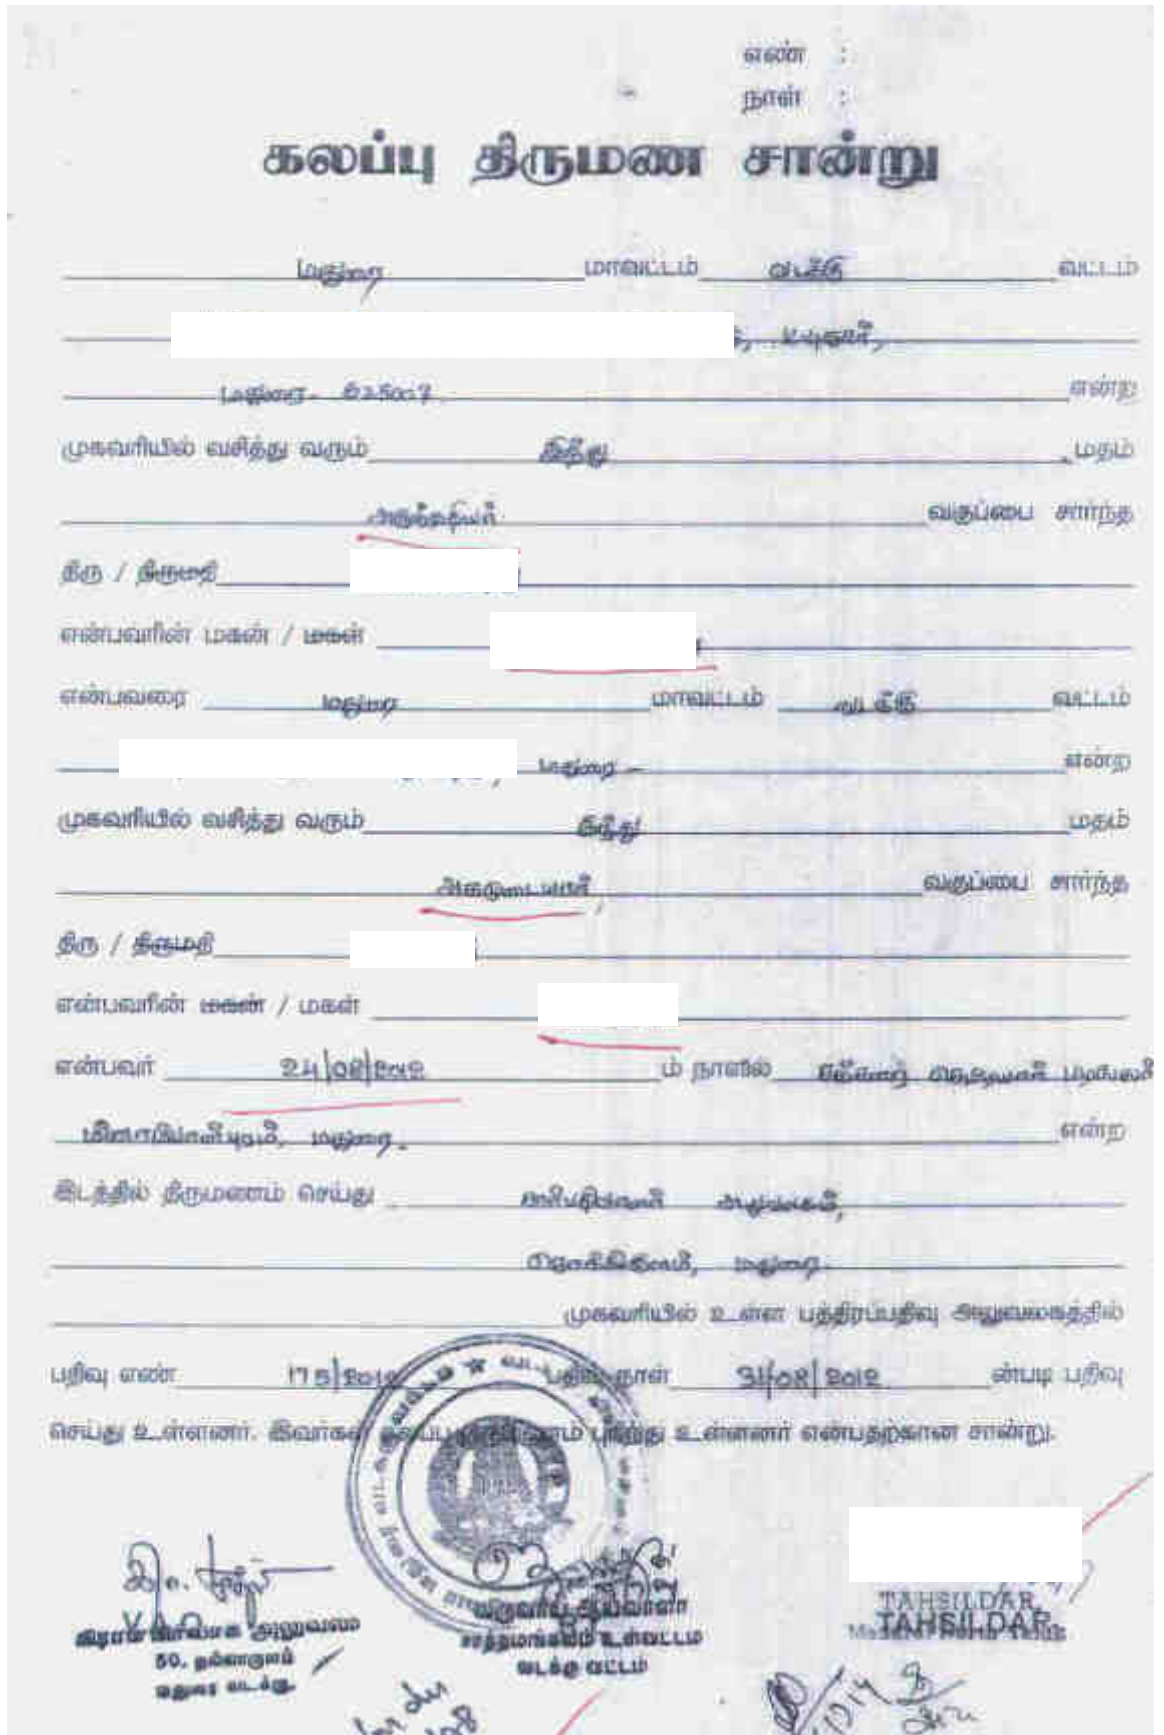 எண் :
நாள் :
கலப்பு திருமண சான்று
மதுரை மாவட்டம் வடக்கு வட்டம்
மதுரை - 625007 என்ற
முகவரியில் வசித்து வரும் இந்து மதம்
அருந்ததியர் வகுப்பை சார்ந்த
திரு / திருமதி
என்பவரின் மகன் / மகள்
என்பவரை மதுரை மாவட்டம் வடக்கு வட்டம்
மதுரை - என்ற
முகவரியில் வசித்து வரும் இந்து மதம்
அகமுடையார், வகுப்பை சார்ந்த
திரு / திருமதி
என்பவரின் மகன் / மகள்
என்பவர் 24/08/2012 ம் நாளில்
மதுரை. என்ற
இடத்தில் திருமணம் செய்து சார்பதிவாளர் அலுவலகம்,
சொக்கிகுளம், மதுரை.
முகவரியில் உள்ள பத்திரப்பதிவு அலுவலகத்தில்
பதிவு எண் 175/2012 பதிவு நாள் 31/08/2012 ன்படி பதிவு
செய்து உள்ளனர். இவர்கள் கலப்பு திருமணம் புரிந்து உள்ளனர் என்பதற்கான சான்று.
V.A.O
கிராம நிர்வாக அலுவலர்
50. நல்லாகுளம்
மதுரை வடக்கு.
வருவாய் ஆய்வாளர்
சாத்தமங்கலம் உள்வட்டம்
வடக்கு வட்டம்
TAHSILDAR,
TAHSILDAR
Madurai North Taluk